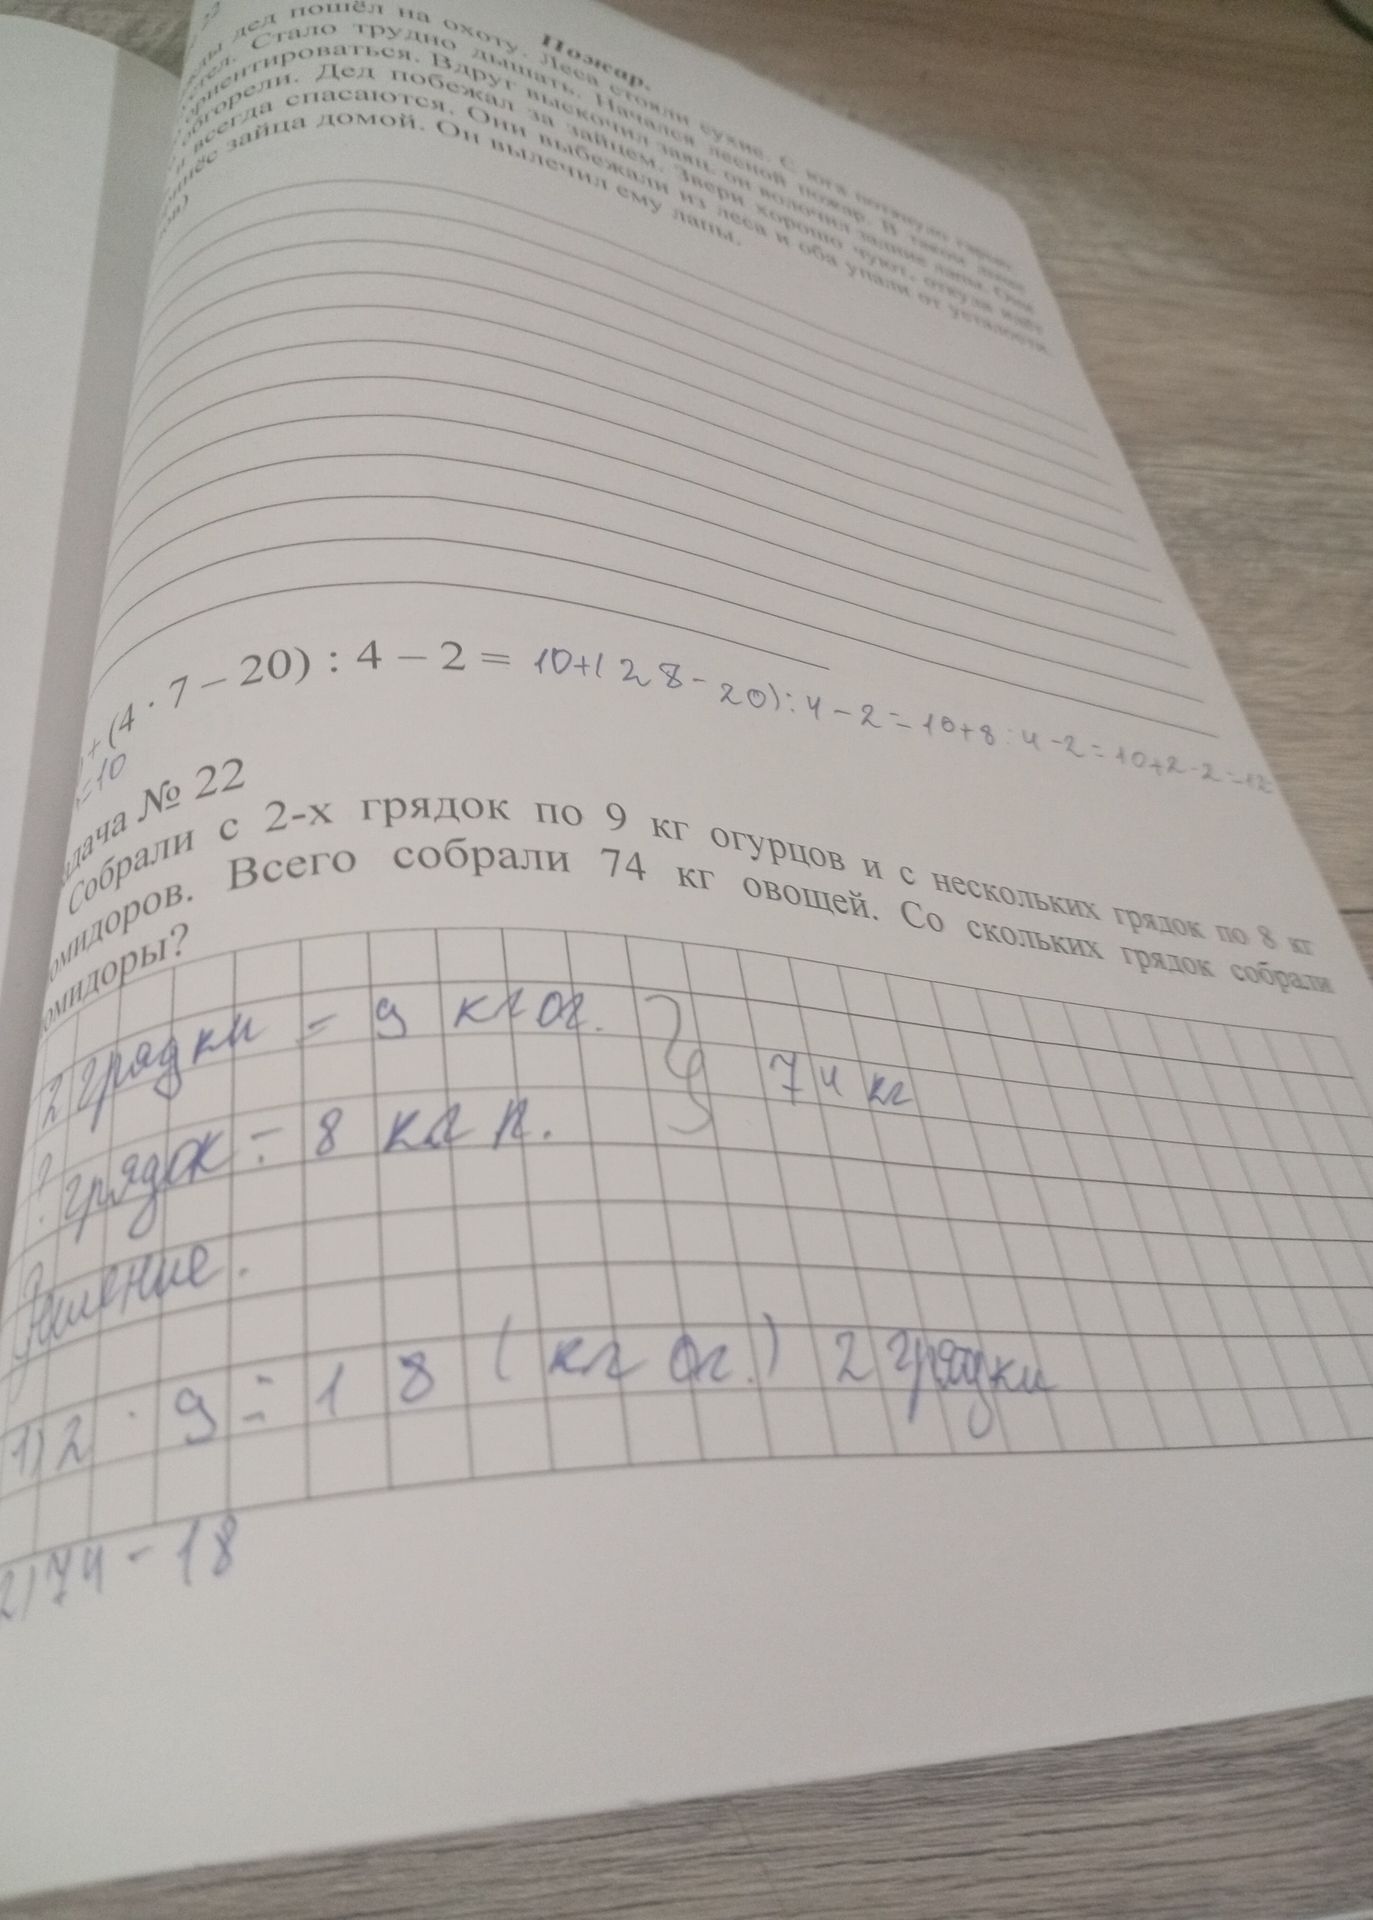 22
Пожар.
дед пошёл на охоту. Леса стояли сухие. С юга потянуло гарью.
Стало трудно дышать. Начался лесной пожар. В таком дыму
ориентироваться. Вдруг выскочил заяц, он волочил задние лапы. Они
обгорели. Дед побежал за зайцем. Звери хорошо чуют, откуда идёт
и всегда спасаются. Они выбежали из леса и оба упали от усталости.
зайца домой. Он вылечил ему лапы.
+ (4 · 7 – 20) : 4 – 2 = 10+(28-20):4-2=10+8:4-2=10+2-2=12
=10
№ 22
Собрали с 2-х грядок по 9 кг огурцов и с нескольких грядок по 8 кг
омидоров. Всего собрали 74 кг овощей. Со скольких грядок собрали
омидоры?
2 грядки = 9 кг ог.
74 кг
? грядок = 8 кг п.
Решение.
1) 2 · 9 = 18 (кг ог.) 2 грядки
2) 74 - 18